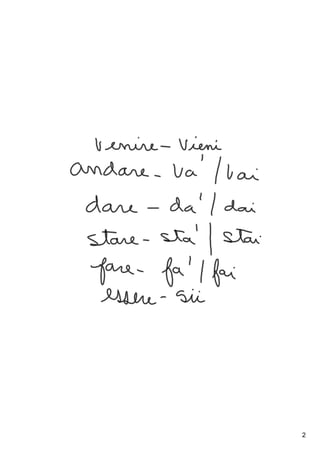 venire - Vieni
andare - va' / vai
dare - da' / dai
stare - sta' / stai
fare - fa' / fai
essere - sii
2